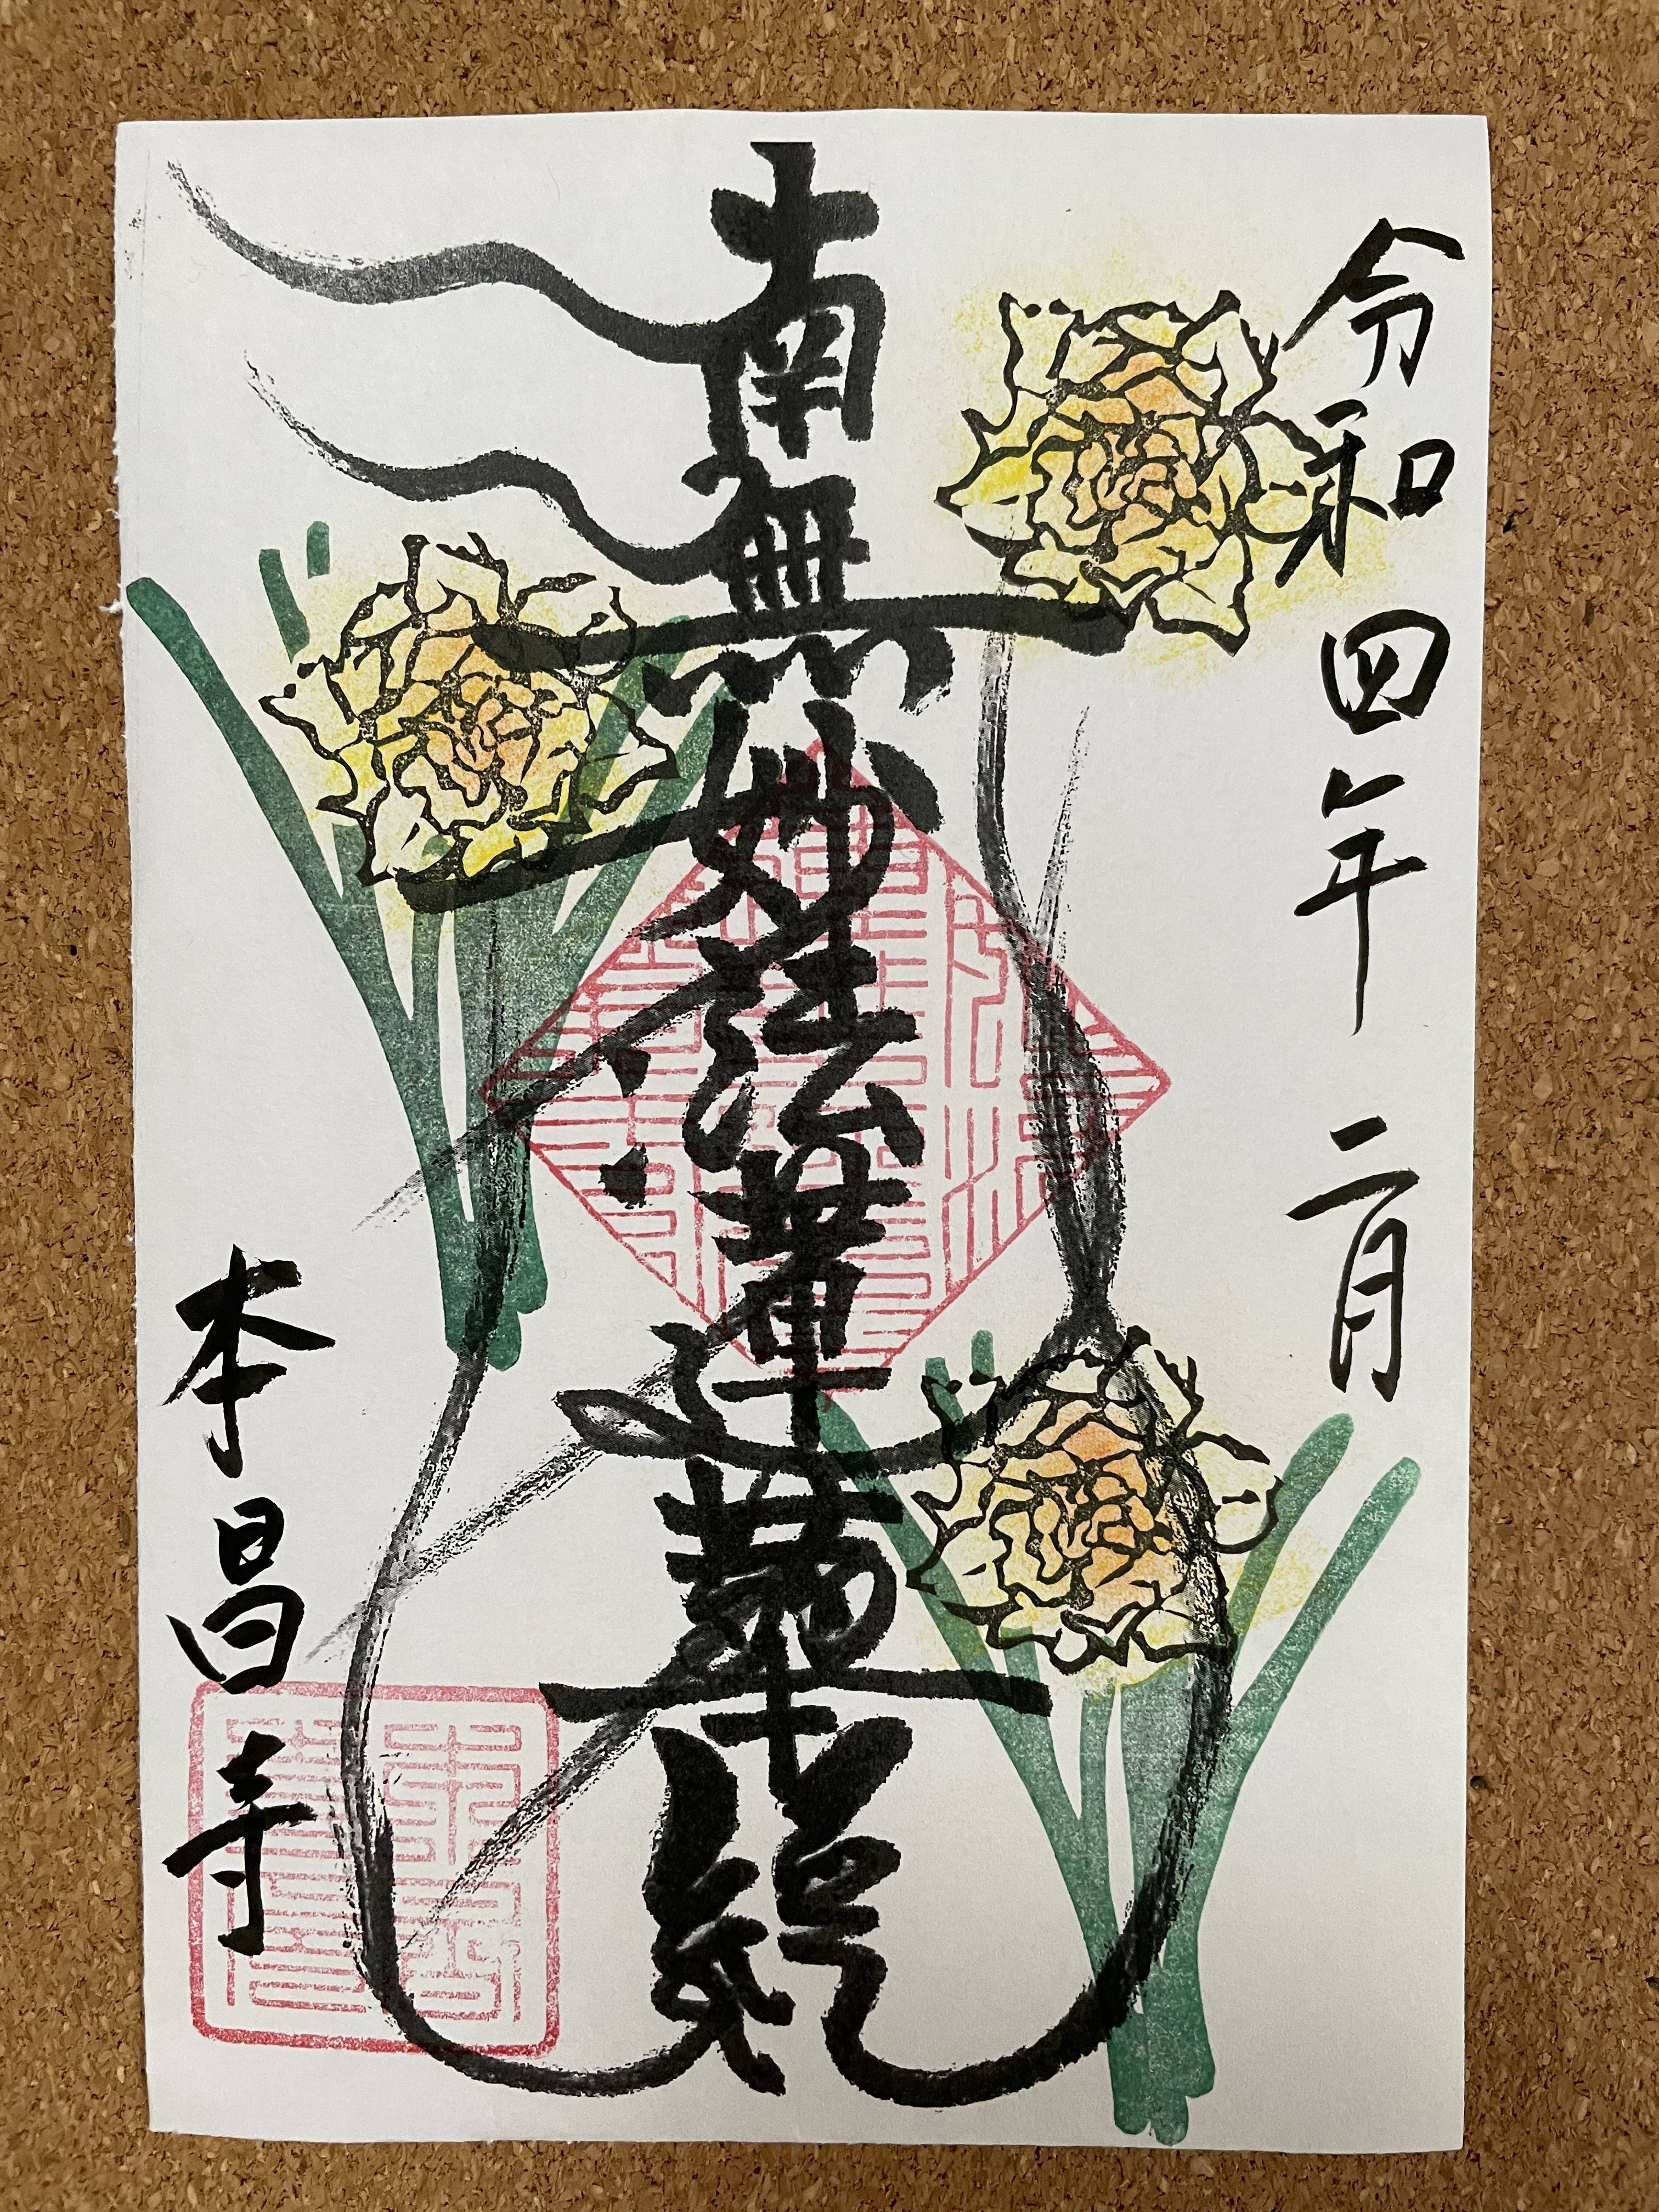 令和四年 二月
南無妙法蓮華経
本昌寺